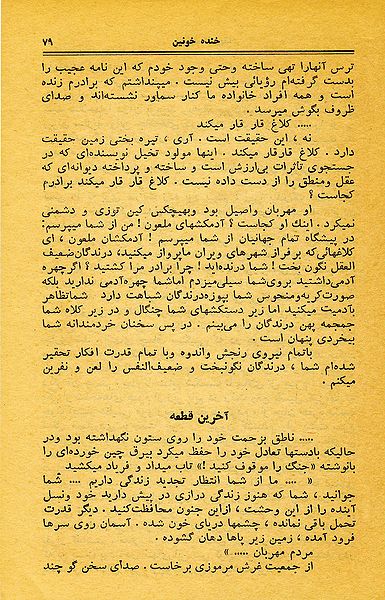 خنده خونین ۷۹
ترس آنهارا تهی ساخته وحتی وجود خودم که این نامه عجیب را
بدست گرفته‌ام رؤیائی بیش نیست . میپنداشتم که برادرم زنده
است و همه افراد خانواده ما کنار سماور نشسته‌اند و صدای
ظروف بگوش میرسد .
..... کلاغ قار قار میکند
نه ، این حقیقت است . آری ، تیره بختی زمین حقیقت
دارد . کلاغ قارقار میکند . اینها مولود تخیل نویسنده‌ای که در
جستجوی تاثرات بی‌ارزش است و ساخته و پرداخته دیوانه‌ای که
عقل ومنطق را از دست داده نیست . کلاغ قار قار میکند برادرم
کجاست ؟
او مهربان واصیل بود وبهیچکس کین توزی و دشمنی
نمیکرد . اینك او کجاست ؟ آدمکشهای ملعون ! من از شما میپرسم:
در پیشگاه تمام جهانیان از شما میپرسم ! آدمکشان ملعون ، ای
کلاغهائی‌که برفراز شهرهای ویران ماپرواز میکنید، درندگان‌ضعیف
العقل نگون بخت ! شما درنده‌اید ! چرا برادر مرا کشتید ؟ اگرچهره
آدمی‌داشتید بروی‌شما سیلی‌میزدم اماشما چهره‌آدمی ندارید بلکه
صورت‌کریه‌ومنحوس شما بپوزه‌درندگان شباهت دارد شماتظاهر
بآدمیت میکنید اما زیر دستکشهای شما چنگال و در زیر کلاه شما
جمجمه پهن درندگان را می‌بینم . در پس سخنان خردمندانه شما
بیخردی پنهان است .
باتمام نیروی رنجش واندوه وبا تمام قدرت افکار تحقیر
شده‌ام شما ، درندگان نگونبخت و ضعیف‌النفس را لعن و نفرین
میکنم .
آخرین قطعه
..... ناطق بزحمت خود را روی ستون نگهداشته بود ودر
حالیکه بادستها تعادل خود را حفظ میکرد بیرق چین خورده‌ای را
بانوشته «جنك را موقوف کنید !» تاب میداد و فریاد میکشید
« .... ما از شما انتظار تجدید زندگی داریم .... شما
جوانید ، شما که هنوز زندگی درازی در پیش دارید خود ونسل
آینده را از این وحشت ، ازاین جنون محافظت‌کنید . دیگر قدرت
تحمل باقی نمانده ، چشمها دریای خون شده . آسمان روی سرها
فرود آمده ، زمین زیر پاها دهان گشوده .
مردم مهربان ..... »
از جمعیت غرش مرموزی برخاست . صدای سخن گو چند